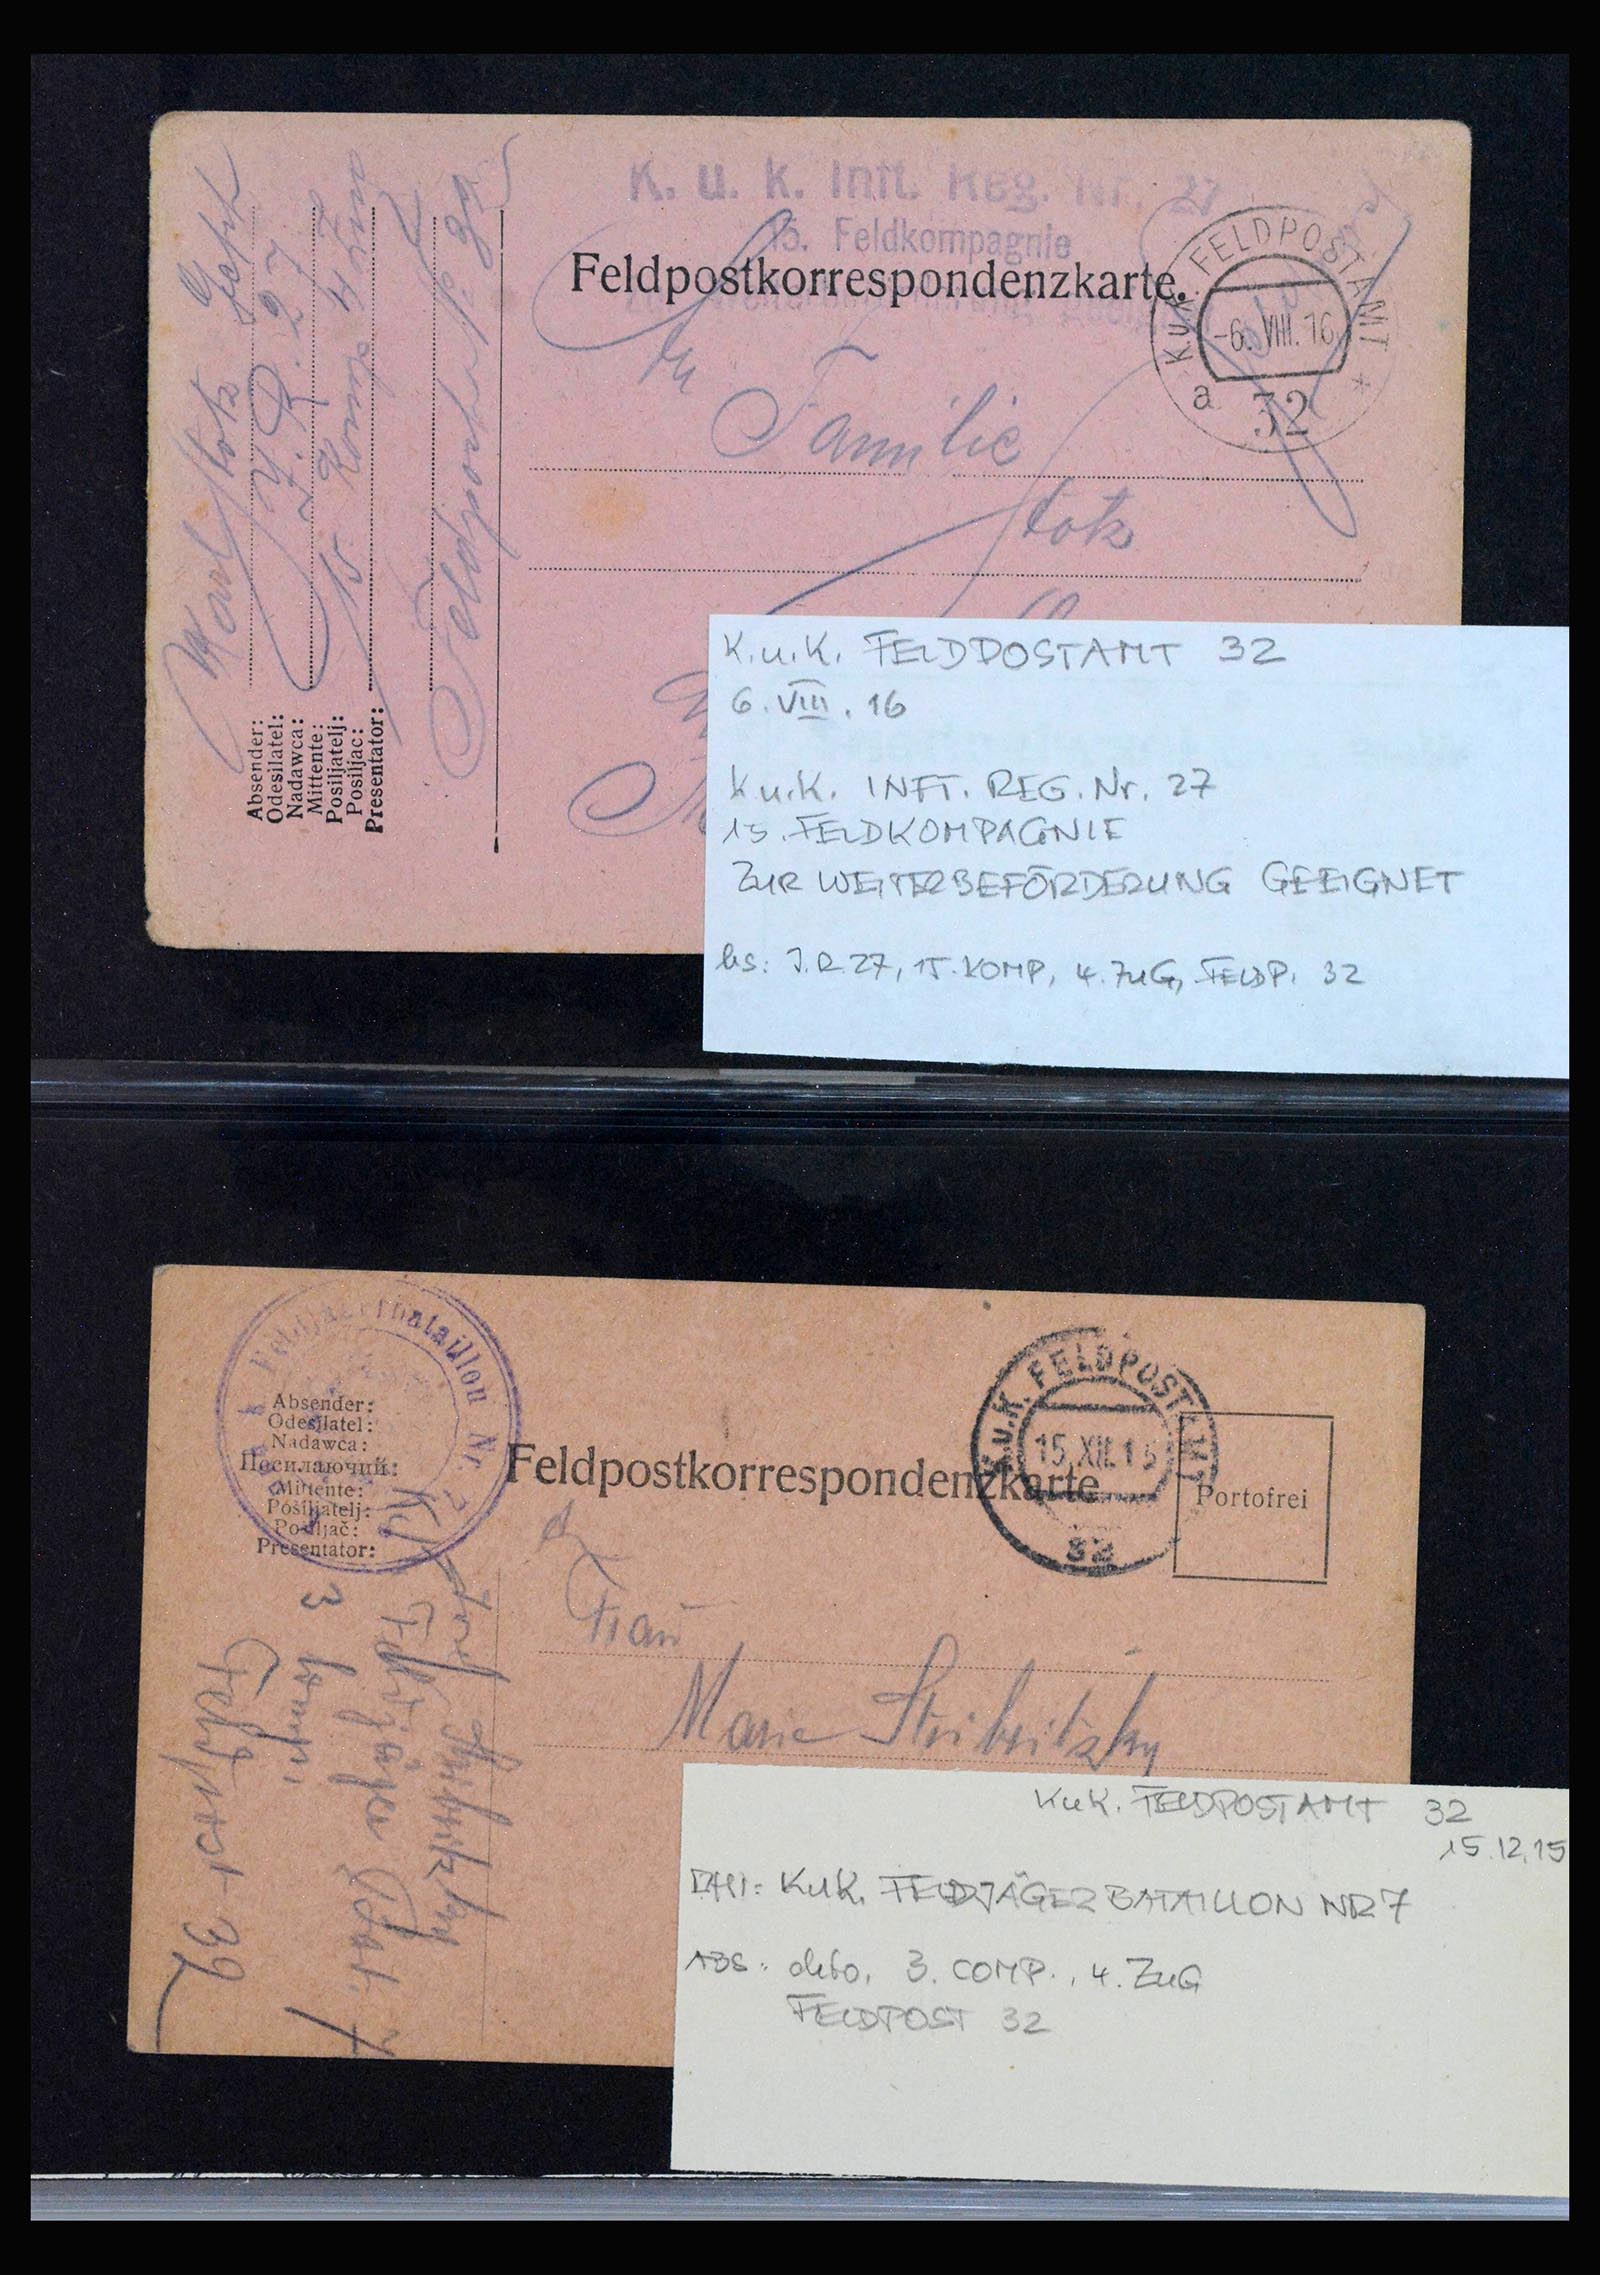 K. u. k. Inft. Reg. Nr. 27
15. Feldkompagnie
Feldpostkorrespondenzkarte.
K.u.K. FELDPOSTAMT
-6. VIII. 16
a 32 *
Familie
Stotz
Absender:
Odesilatel:
Nadawca:
Mittente:
Posiljatelj:
Posiljac:
Presentator:
Karl Stotz
Feldpost 32
K.u.K. FELDPOSTAMT 32
6. VIII. 16
K.u.K. INFT. REG. Nr. 27
15. FELDKOMPAGNIE
ZUR WEITERBEFÖRDERUNG GEEIGNET
hs: J.R. 27, 15. KOMP, 4. ZUG, FELDP. 32
k. u. k. Feldjägerbataillon Nr. 7
Absender:
Odesílatel:
Nadawca:
Посилаючий:
Mittente:
Pošiljatelj:
Pošiljač:
Presentator:
Feldpostkorrespondenzkarte
K.u.K. FELDPOSTAMT
15.XII.15
32
Portofrei
Frau
Marie Stribritzky
Josef Stribritzky
Feldjäger Bat. 7
3 Komp.
Feldpost 32
KuK. FELDPOSTAMT 32
15.12.15
KuK. FELDJÄGERBATAILLON NR 7
ABS: detto, 3. COMP., 4. ZUG
FELDPOST 32